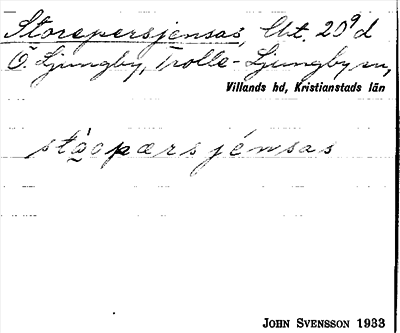 Storepersjensas, Åbt. 20⁹ d
Ö. Ljungby, Trolle-Ljungby sn,
Villands hd, Kristianstads län
stàopærsjénsas
JOHN SVENSSON 1933